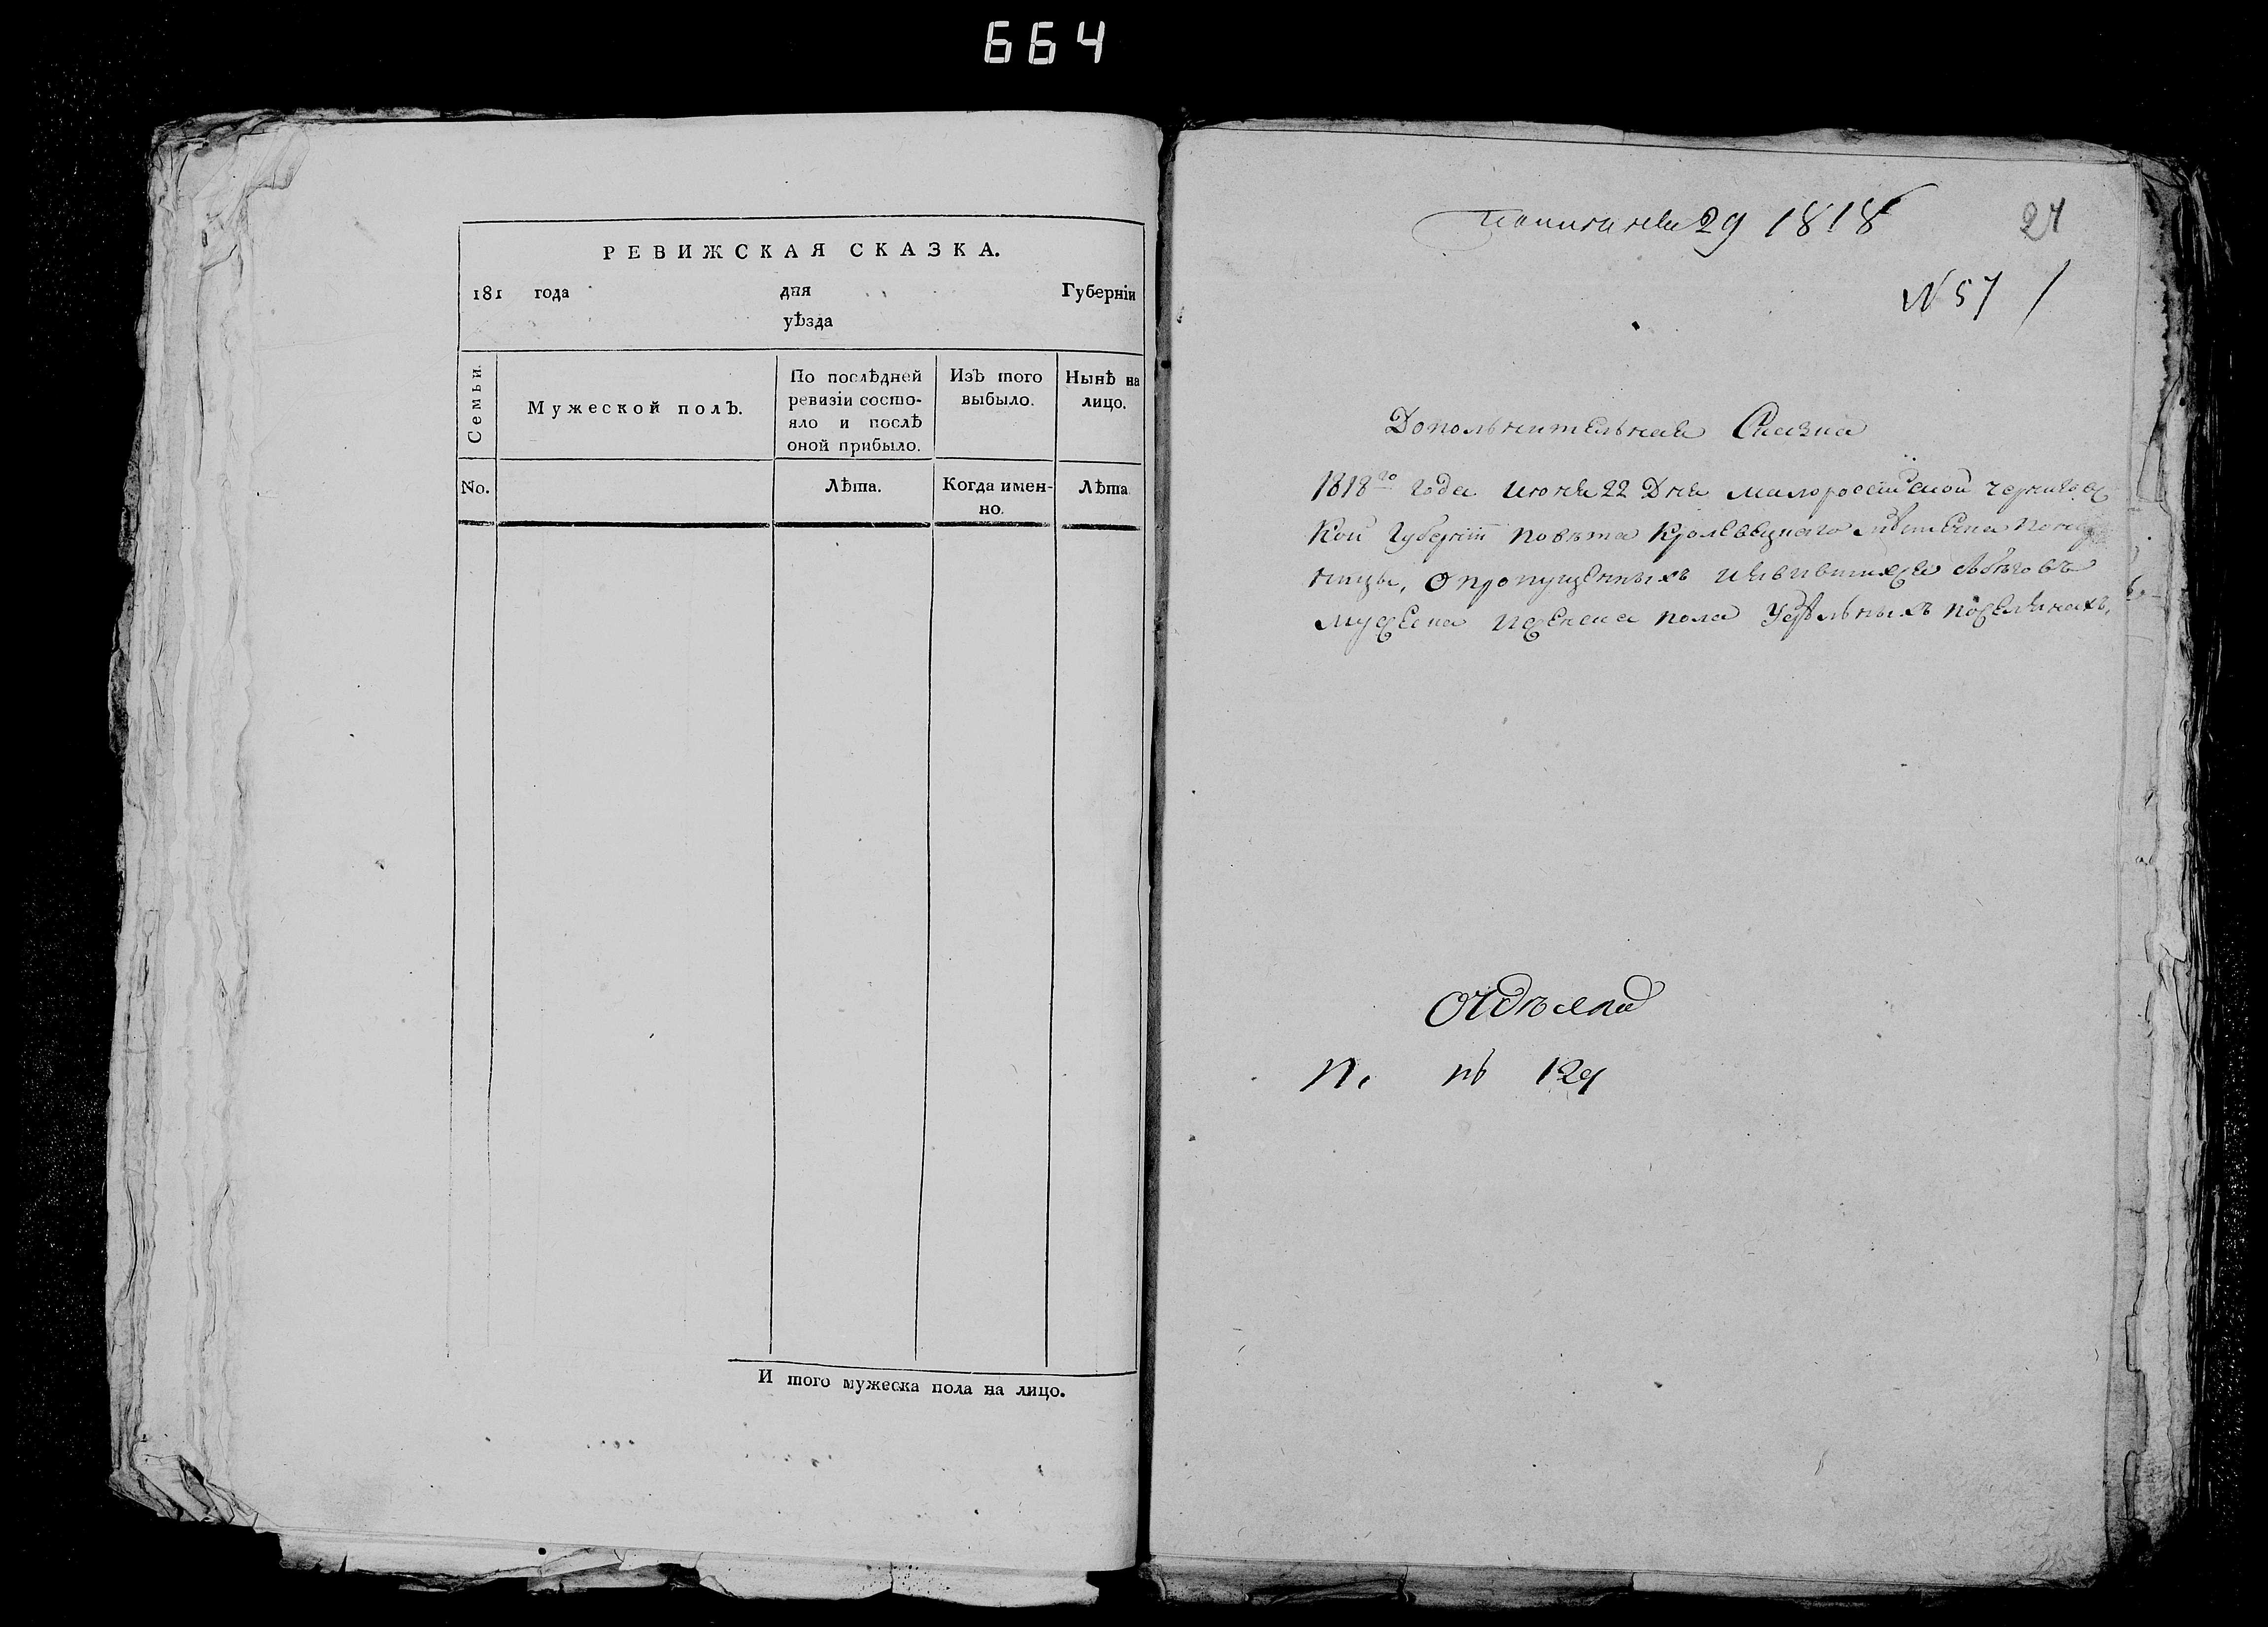 664
РЕВИЖСКАЯ СКАЗКА.
181 года дня Губерніи
уѣзда
Семьи.
Мужеской полЪ.
По послѣдней
ревизіи состо-
яло и послѣ
оной прибыло.
ИзЪ того
выбыло.
Нынѣ на
лицо.
No.
Лѣта.
Когда имен-
но.
Лѣта
И того мужеска пола на лицо.
29 1818
24
N 57 /
Дополнительная Сказка
1818го года июня 22 Дня малоросейской чернигов
кой Губерніи повѣта Кролевецкаго мѣстечка
ницы, о пропущенныхъ
мужеска и женска пола
N. 129